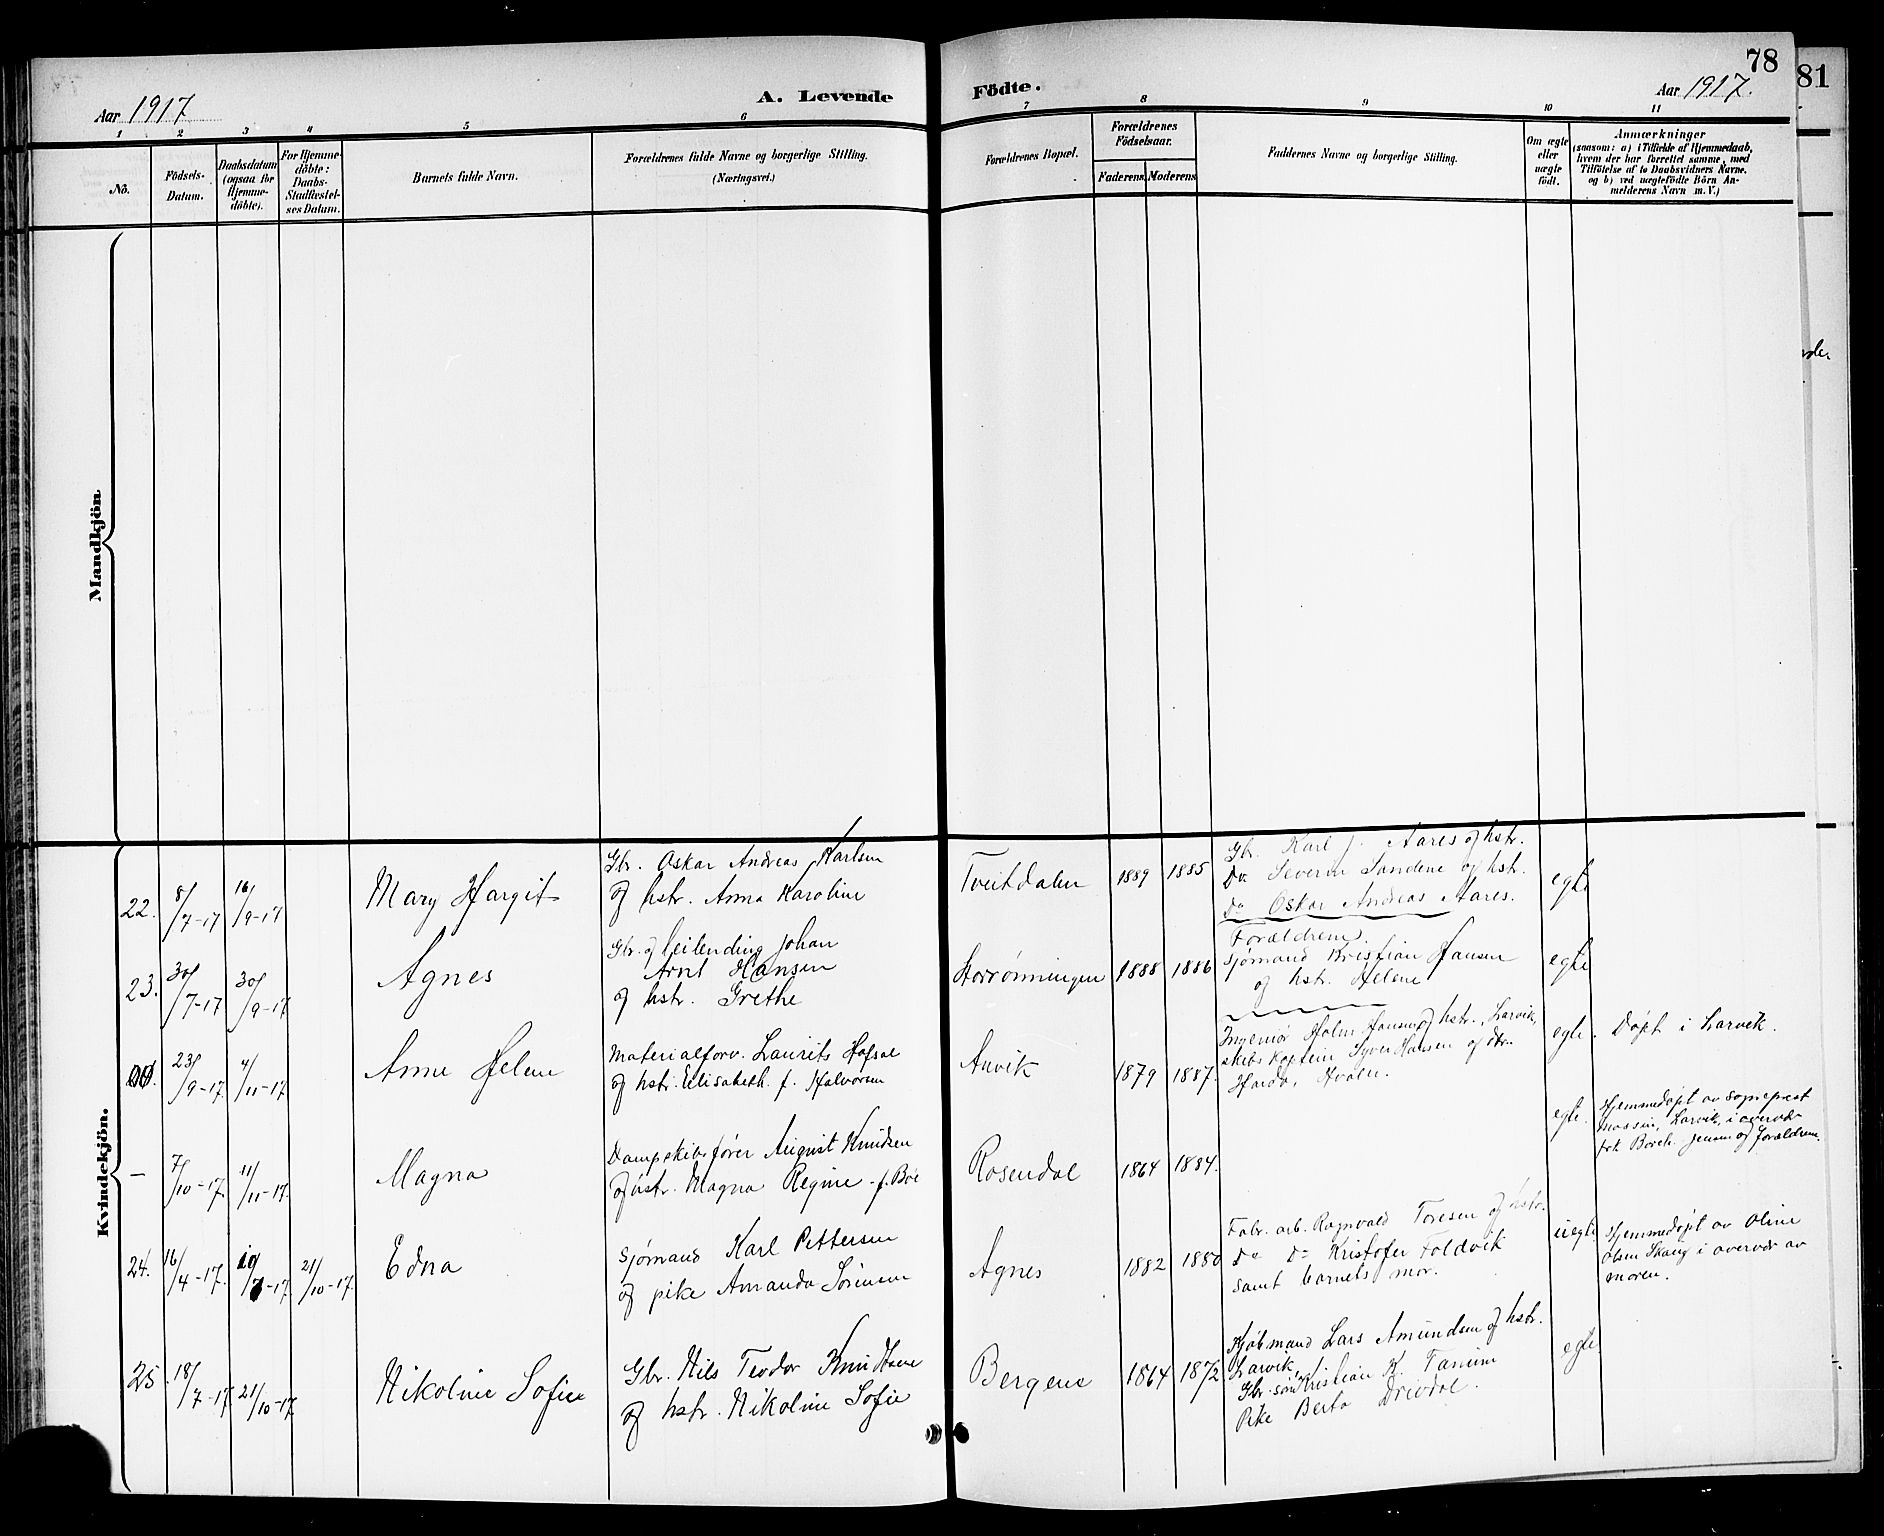 78
81
Aar 1917
A. Levende
Födte.
Aar 1917.
1 2 3 4 5 6 7 8 9 10 11
No.
Födsels-
Datum.
Daabsdatum
(ogsaa for
Hjemme-
döbte).
For Hjemme-
döbte:
Daabs-
Stadfæstel-
ses Datum.
Barnets fulde Navn.
Forældrenes fulde Navne og borgerlige Stilling.
(Næringsvei.)
Forældrenes Bopæl.
Forældrenes
Födselsaar.
Faderens. Moderens.
Faddernes Navne og borgerlige Stilling.
Om ægte
eller
uægte
födt.
Anmærkninger
(saasom: a) i Tilfælde af Hjemmedaab,
hvem der har forrettet samme, med
Tilföielse af to Daabsvidners Navne.
og b) ved uægtefödte Börn An-
melderens Navn m. V.)
Mandkjön.
Kvindekjön.
22.
8/7-17
16/9-17
Mary Hargit
Gbr. Oskar Andreas Karlsen
og hstr. Anna Karoline
Tveitdalen
1889
1885
Gbr. Karl J. Aares og hstr.
Do Severin Sandene og hstr.
Do Oskar Andreas Aares.
egte
23.
30/7-17
30/9-17
Agnes
Gbr. og leilending Johan
Arnt Hansen
og hstr. Grethe
Storrønningen
1888
1886
Forældrene.
Sjømand Kristian Hansen
og hstr. Helene
egte
23/9-17
4/11-17
Anne Helene
Materialforv. Laurits Hofsæ
og hstr. Elisabeth f. Halvorsen
Anvik
1879
1887.
Ingeniør Holm Hansen og hstr., Larvik,
skibskaptein Syver Hansen og
egte.
Døpt i Larvik.
—
7/10-17.
11/11-17.
Magna
Dampskibsfører August Knudsen
og hstr. Magna Regine f. Bøe
Rosendal
1864
1884.
egte.
Hjemmedøpt av sogneprest
Larvik, i overvær
frk Borch. Jensen og forældrene.
24.
16/4-17.
19/7-17
21/10-17.
Edna
Sjømand Karl Pettersen
og pike Amanda Sørensen
Agnes
1882
1880
Fabr. arb. Ragnvald Toresen og hstr.
Do Do Kristofer Foldvik
samt barnets mor.
uegte
Hjemmedøpt av Oline
Olsen Skaug i overvær av
moren.
25.
18/7-17
21/10-17
Nikoline Sofie
Gbr. Nils Teodor Knudsen
og hstr. Nikoline Sofie
Bergene
1864
1872
Kjøbmand Lars Amundsen og hstr.
Larvik,
Gbr. søn Kristian K. Tanum
Pike Berta Drivdal.
egte